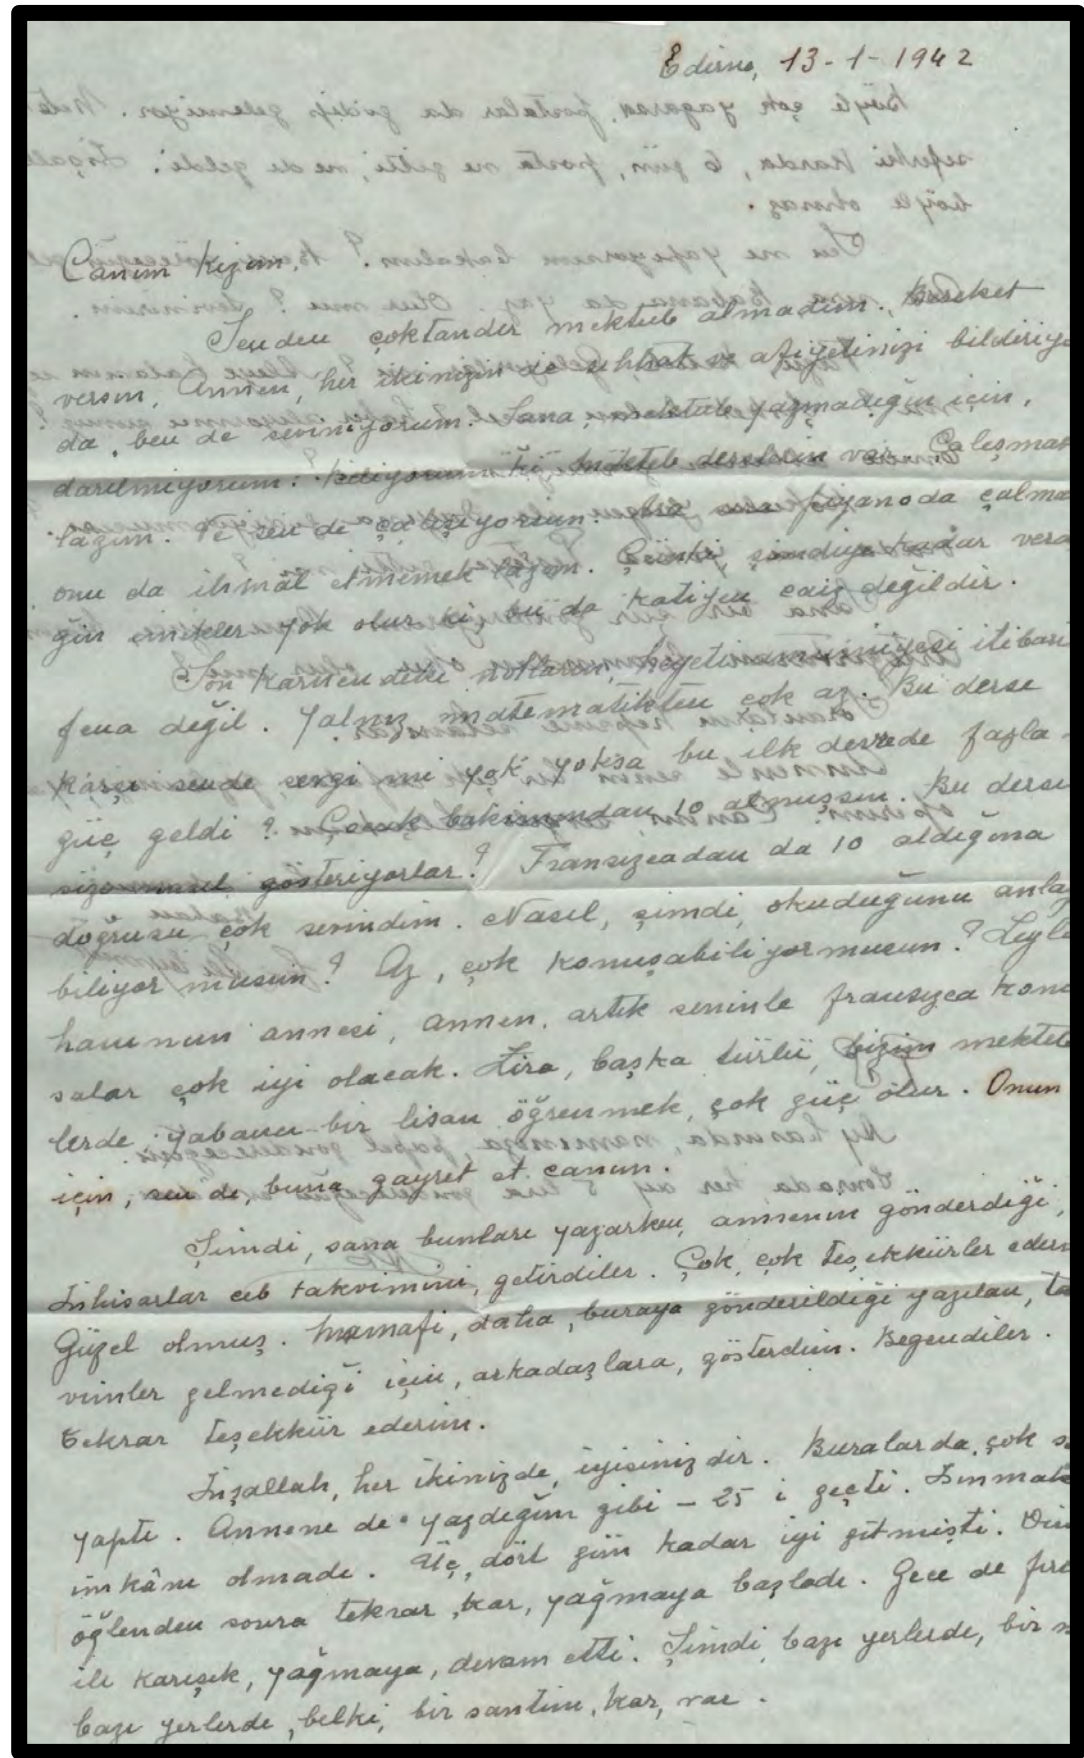 Edirne, 13-1-1942
Canım kızım,
Senden çoktandır mektub almadım. Bereket
versin, Annen, her ikinizin de sıhhat ve afiyetinizi bildiriyo
da, ben de seviniyorum. Sana mektub yazmadığın için,
darılmıyorum. Biliyorum ki, mekteb derslerin var. Çalışman
lâzım. Ve sen de çalışıyorsun. piyanoda çalma
onu da ihmâl etmemek lâzım. Çünki, şimdiye kadar verd
ğin emekler yok olur ki, bu da katiyen caiz değildir.
Son karnendeki notların, heyetiumumiyesi itibari
fena değil. Yalnız matematikten çok az. Bu derse
karşı sende, sevgi mi yok yoksa bu ilk devrede fazla
güç geldi? Çocuk bakımından 10 almışsın. Bu dersi
size nasıl gösteriyorlar? Fransızcadan da 10 aldığına
doğrusu çok sevindim. Nasıl, şimdi, okuduğunu anlay
biliyor musun? Az, çok konuşabiliyormusun? Leylâ
hanımın annesi, annen, artık seninle fransızca konu
salar çok iyi olacak. Zira, başka türlü, bizim mekteb
lerde yabancı bir lisan öğrenmek, çok güç olur. Onun
için, sen de, buna gayret et canım.
Şimdi, sana bunları yazarken, annenin gönderdiği,
İnhisarlar ceb takvimini, getirdiler. Çok, çok teşekkürler ederi
Güzel olmuş. Mamafi, daha, buraya gönderildiği yazılan, ta
vimler gelmediği için, arkadaşlara, gösterdim. Beğendiler.
Tekrar teşekkür ederim.
İnşallah, her ikinizde, iyisinizdir. Buralarda, çok s
yaptı. Annene de yazdığım gibi - 25 i geçti. Isınmak
imkânı olmadı. Üç, dört gün kadar iyi gitmişti. Dün
öğlenden sonra tekrar, kar, yağmaya başladı. Gece de fır
ile karışık, yağmaya, devam etti. Şimdi, bazı yerlerde, bir m
bazı yerlerde, belki, bir santim, kar, var.